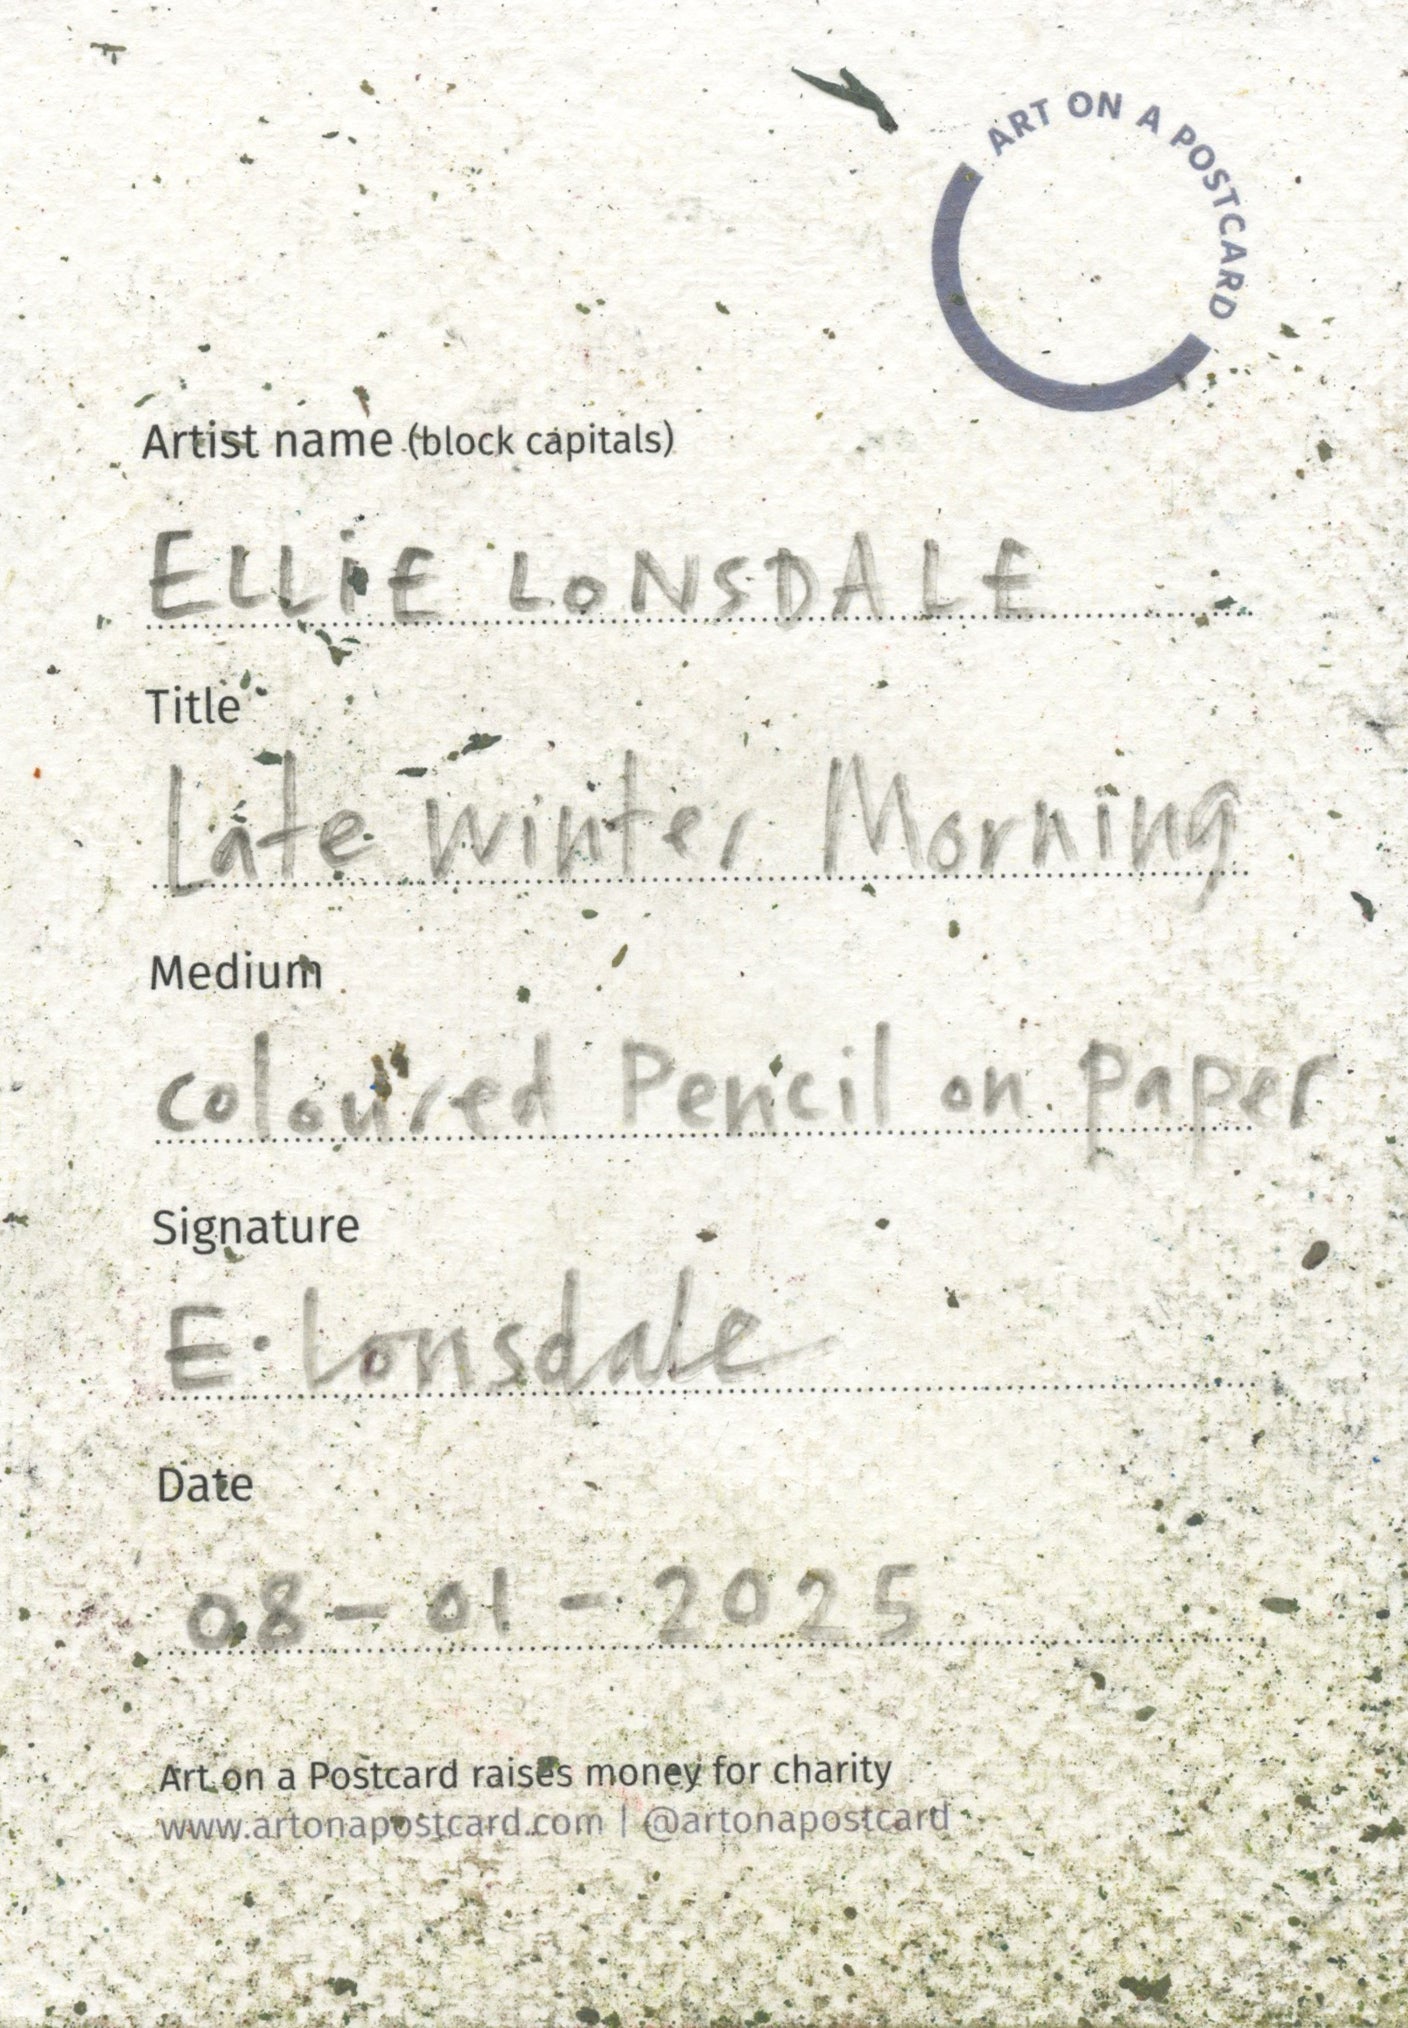 ART ON A POSTCARD
Artist name (block capitals)
ELLiE LoNSDALE
Title
Late winter Morning
Medium
coloured Pencil on paper
Signature
E. Lonsdale
Date
08-01-2025
Art on a Postcard raises money for charity
www.artonapostcard.com | @artonapostcard